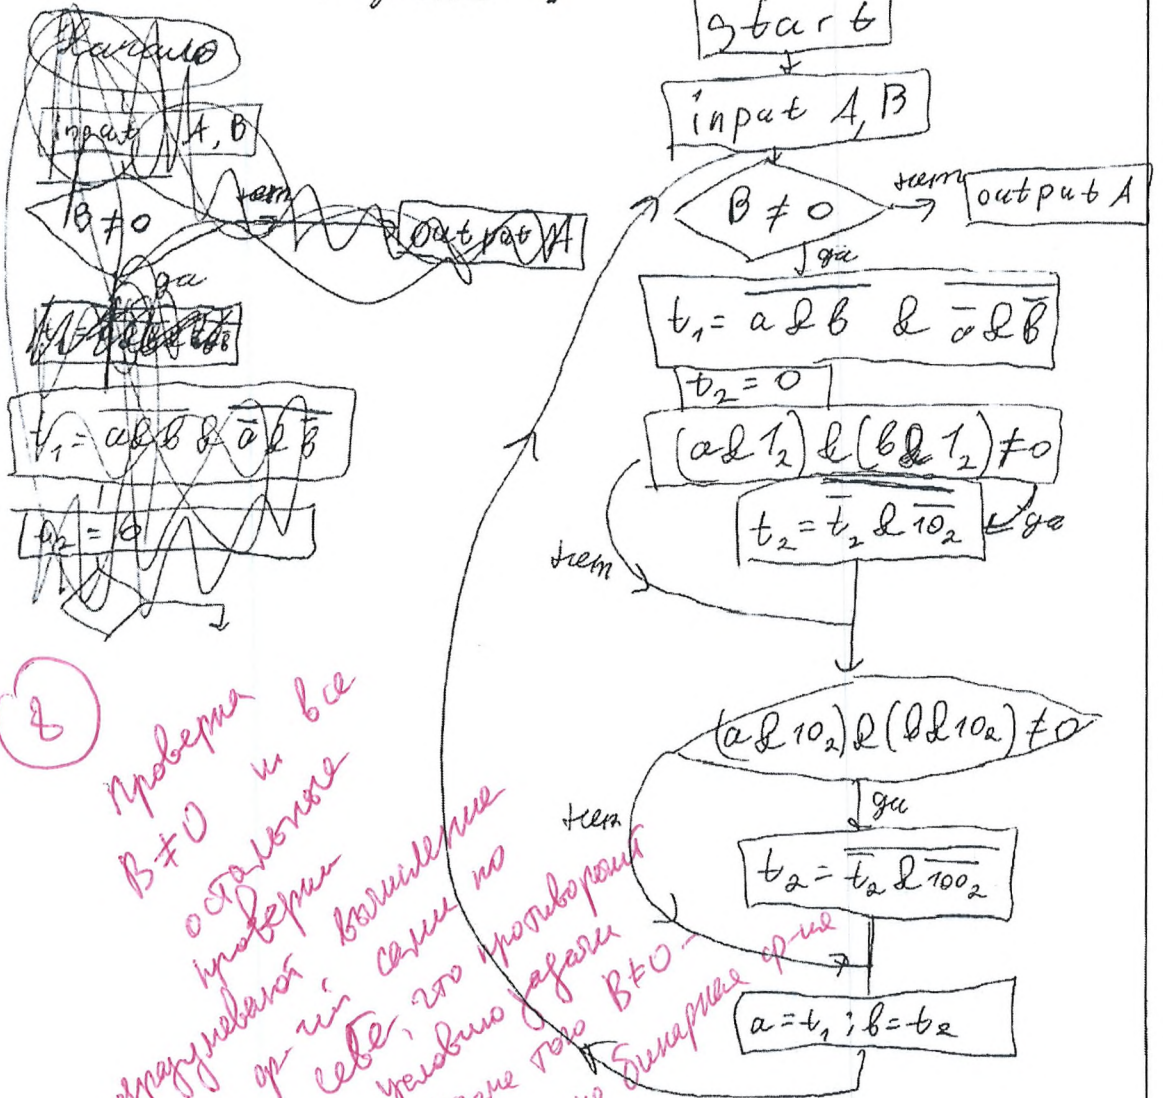 Начало
input A, B
B ≠ 0
нет
output A
да
t₁ = \overline{a & b} & \overline{\overline{a} & \overline{b}}
a₂ = 0
start
input A, B
B ≠ 0
нет
output A
да
t₁ = \overline{a & b} & \overline{\overline{a} & \overline{b}}
t₂ = 0
(a & 1₂) & (b & 1₂) ≠ 0
да
t₂ = \overline{\overline{t₂} & \overline{10₂}}
нет
(a & 10₂) & (b & 10₂) ≠ 0
да
нет
t₂ = \overline{\overline{t₂} & \overline{100₂}}
a = t₁ ; b = t₂
8
Проверка
B ≠ 0 и все
остальные
проверки
вычисление
ф-ий сами по
себе, что противоречит
условию задачи
того B ≠ 0 -
бинарная ф-ия